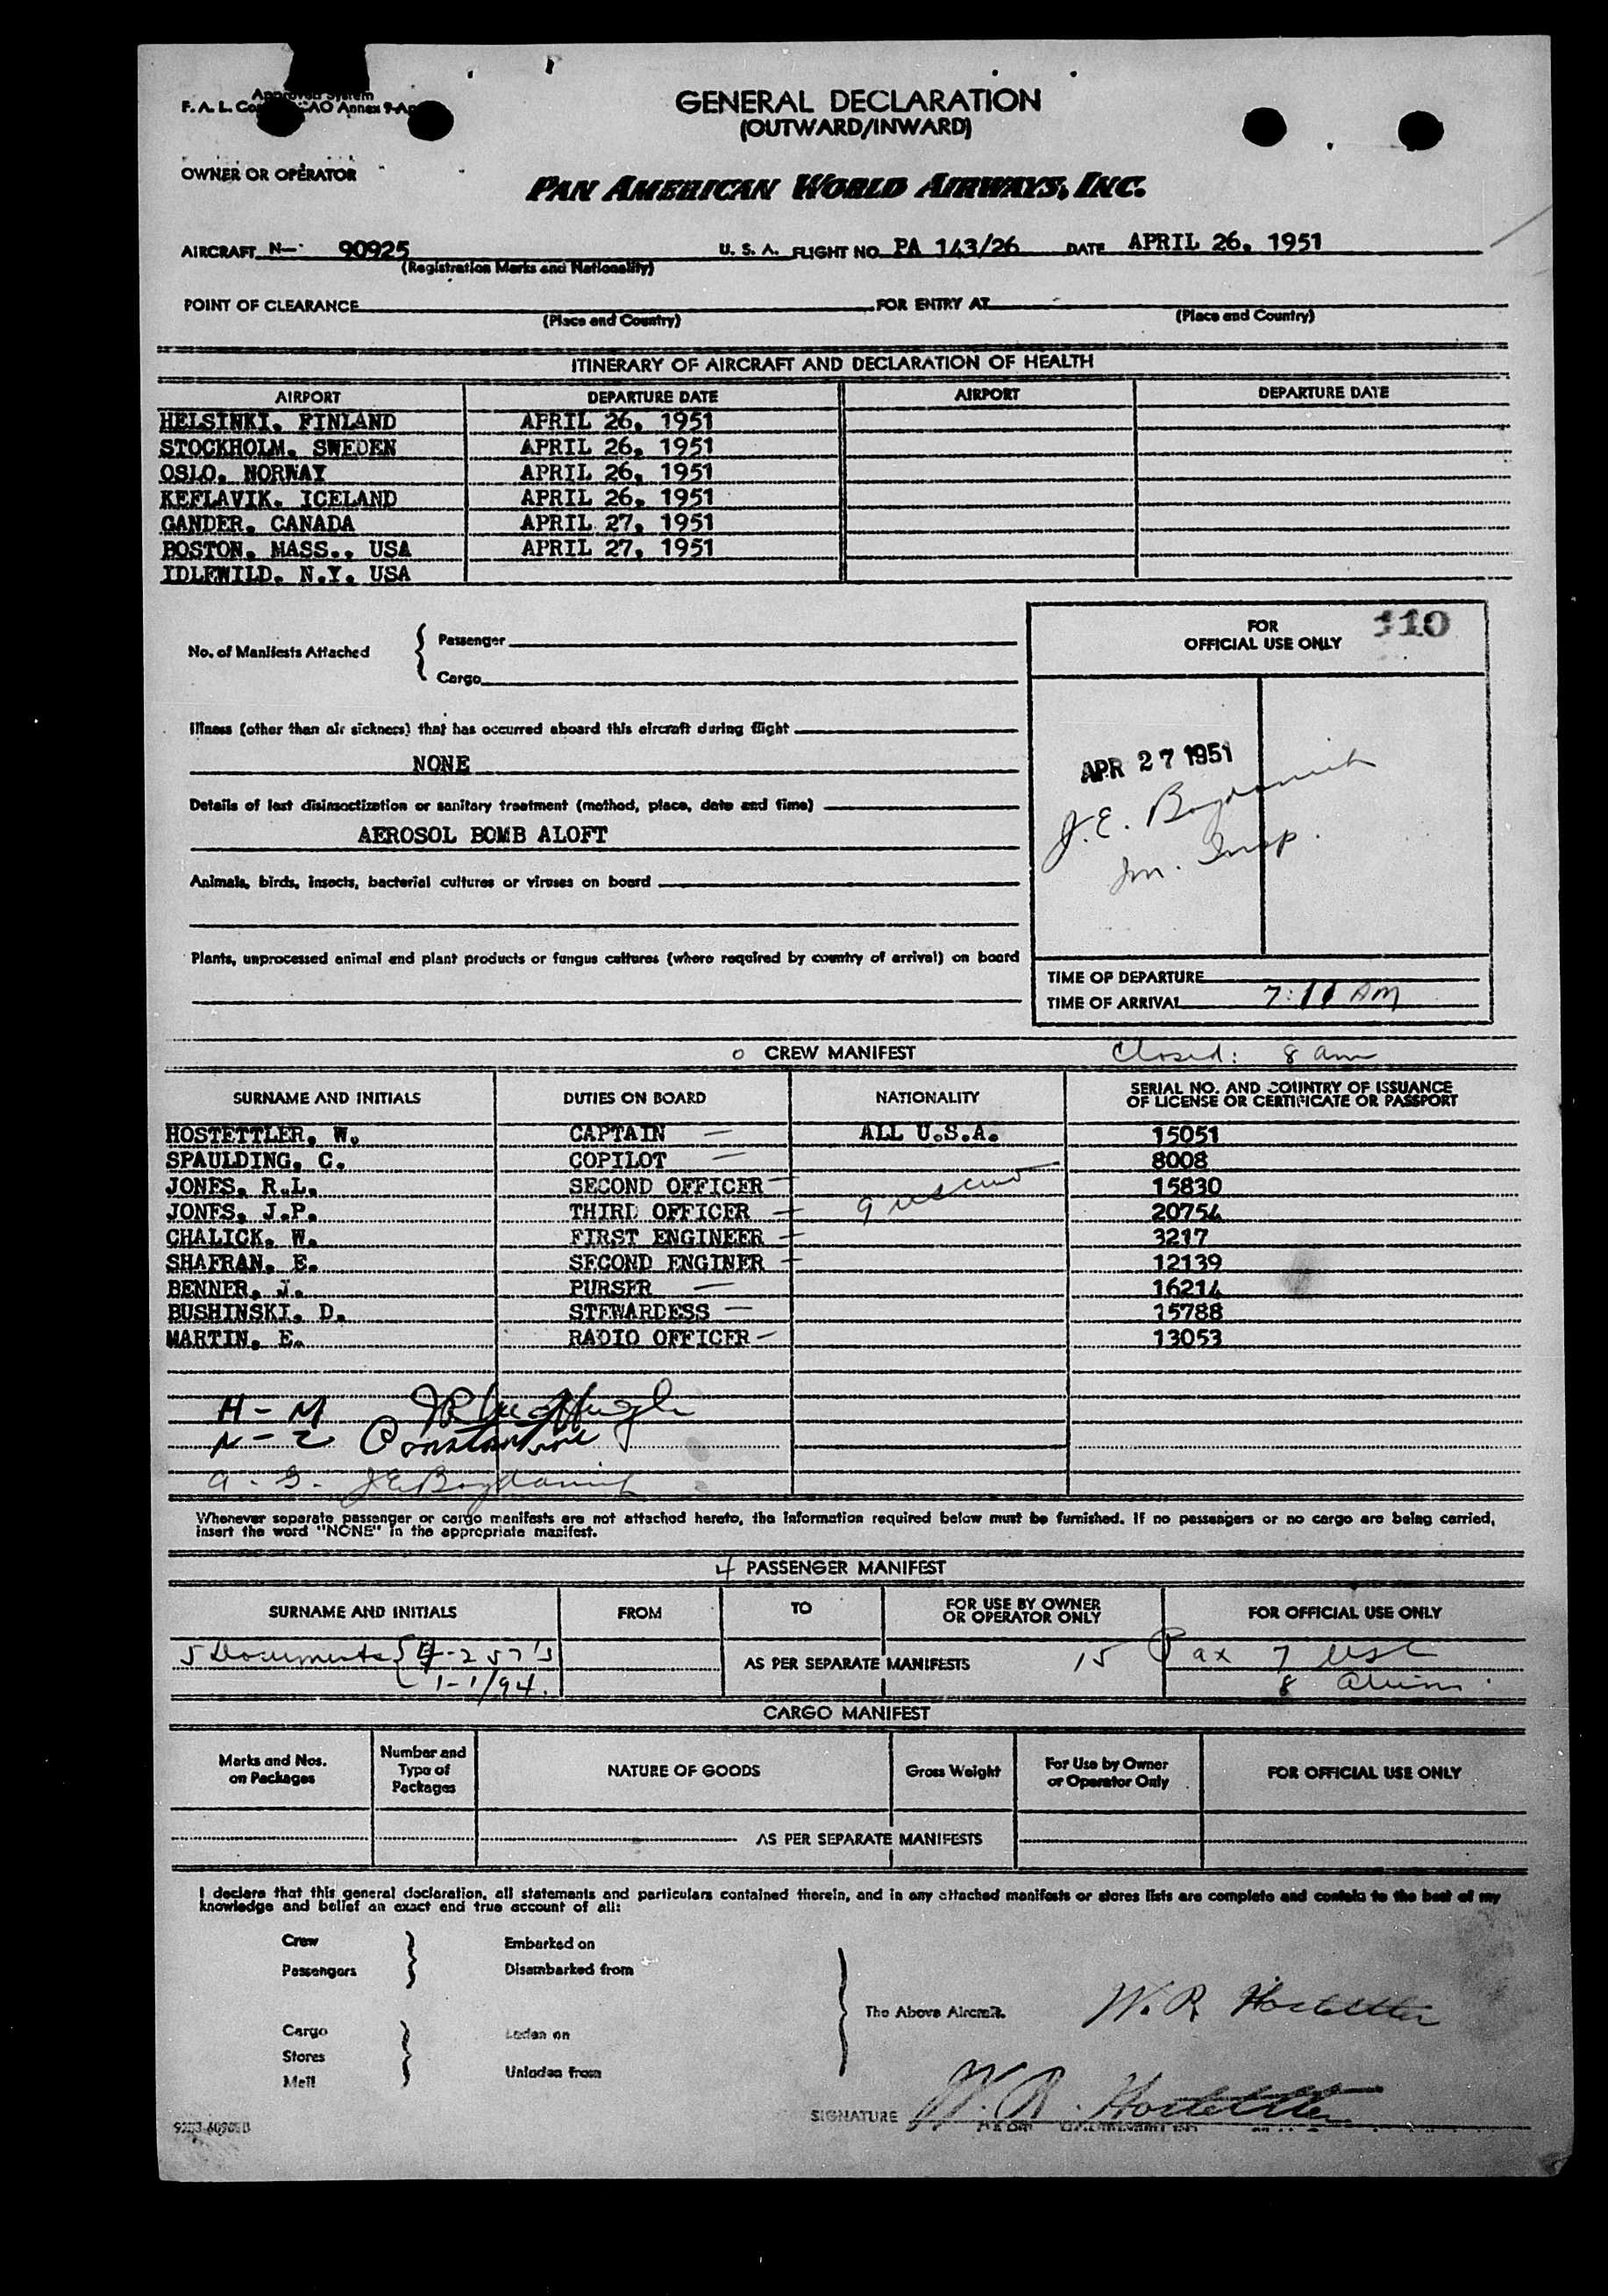 Approved System
F. A. L. Co AO Annex 9-Ap
GENERAL DECLARATION
(OUTWARD/INWARD)
OWNER OR OPERATOR
PAN AMERICAN WORLD AIRWAYS, INC.
AIRCRAFT N- 90925 U. S. A. FLIGHT NO. PA 143/26 DATE APRIL 26, 1951
(Registration Marks and Nationality)
POINT OF CLEARANCE FOR ENTRY AT
(Place and Country) (Place and Country)
ITINERARY OF AIRCRAFT AND DECLARATION OF HEALTH
AIRPORT DEPARTURE DATE AIRPORT DEPARTURE DATE
HELSINKI, FINLAND APRIL 26, 1951
STOCKHOLM, SWEDEN APRIL 26, 1951
OSLO, NORWAY APRIL 26, 1951
KEFLAVIK, ICELAND APRIL 26, 1951
GANDER, CANADA APRIL 27, 1951
BOSTON, MASS., USA APRIL 27, 1951
IDLEWILD, N.Y. USA
FOR
OFFICIAL USE ONLY 110
No. of Manifests Attached
Passenger
Cargo
Illness (other than air sickness) that has occurred aboard this aircraft during flight
NONE
Details of last disinsectization or sanitary treatment (method, place, date and time)
AEROSOL BOMB ALOFT
Animals, birds, insects, bacterial cultures or viruses on board
Plants, unprocessed animal and plant products or fungus cultures (where required by country of arrival) on board
APR 27 1951
J.E. Bogdanich
Im. Insp.
TIME OF DEPARTURE
TIME OF ARRIVAL 7:11 AM
0 CREW MANIFEST Closed: 8 am
SURNAME AND INITIALS DUTIES ON BOARD NATIONALITY SERIAL NO. AND COUNTRY OF ISSUANCE
OF LICENSE OR CERTIFICATE OR PASSPORT
HOSTETTLER, W. CAPTAIN — ALL U.S.A. 15051
SPAULDING, C. COPILOT — 8008
JONES, R.L. SECOND OFFICER — 15830
JONES, J.P. THIRD OFFICER — 9 20754
CHALICK, W. FIRST ENGINEER — 3217
SHAFRAN, E. SECOND ENGINER — 12139
BENNER, J. PURSER — 16214
BUSHINSKI, D. STEWARDESS — 15788
MARTIN, E. RADIO OFFICER — 13053
H - M
N - Z Constantine
A - G. J E Bogdanich
Whenever separate passenger or cargo manifests are not attached hereto, the information required below must be furnished. If no passengers or no cargo are being carried,
insert the word "NONE" in the appropriate manifest.
4 PASSENGER MANIFEST
SURNAME AND INITIALS FROM TO FOR USE BY OWNER
OR OPERATOR ONLY FOR OFFICIAL USE ONLY
5 Documents { 4-257's AS PER SEPARATE MANIFESTS 15 Pax 7 USC
1-1/94. 8 Aliens
CARGO MANIFEST
Marks and Nos.
on Packages
Number and
Type of
Packages
NATURE OF GOODS
Gross Weight
For Use by Owner
or Operator Only
FOR OFFICIAL USE ONLY
AS PER SEPARATE MANIFESTS
I declare that this general declaration, all statements and particulars contained therein, and in any attached manifests or stores lists are complete and contain to the best of my
knowledge and belief an exact and true account of all:
Crew
Passengers
Embarked on
Disembarked from
Cargo
Stores
Mail
Laden on
Unladen from
The Above Aircraft.
W. R. Hostettler
SIGNATURE W. R. Hostettler